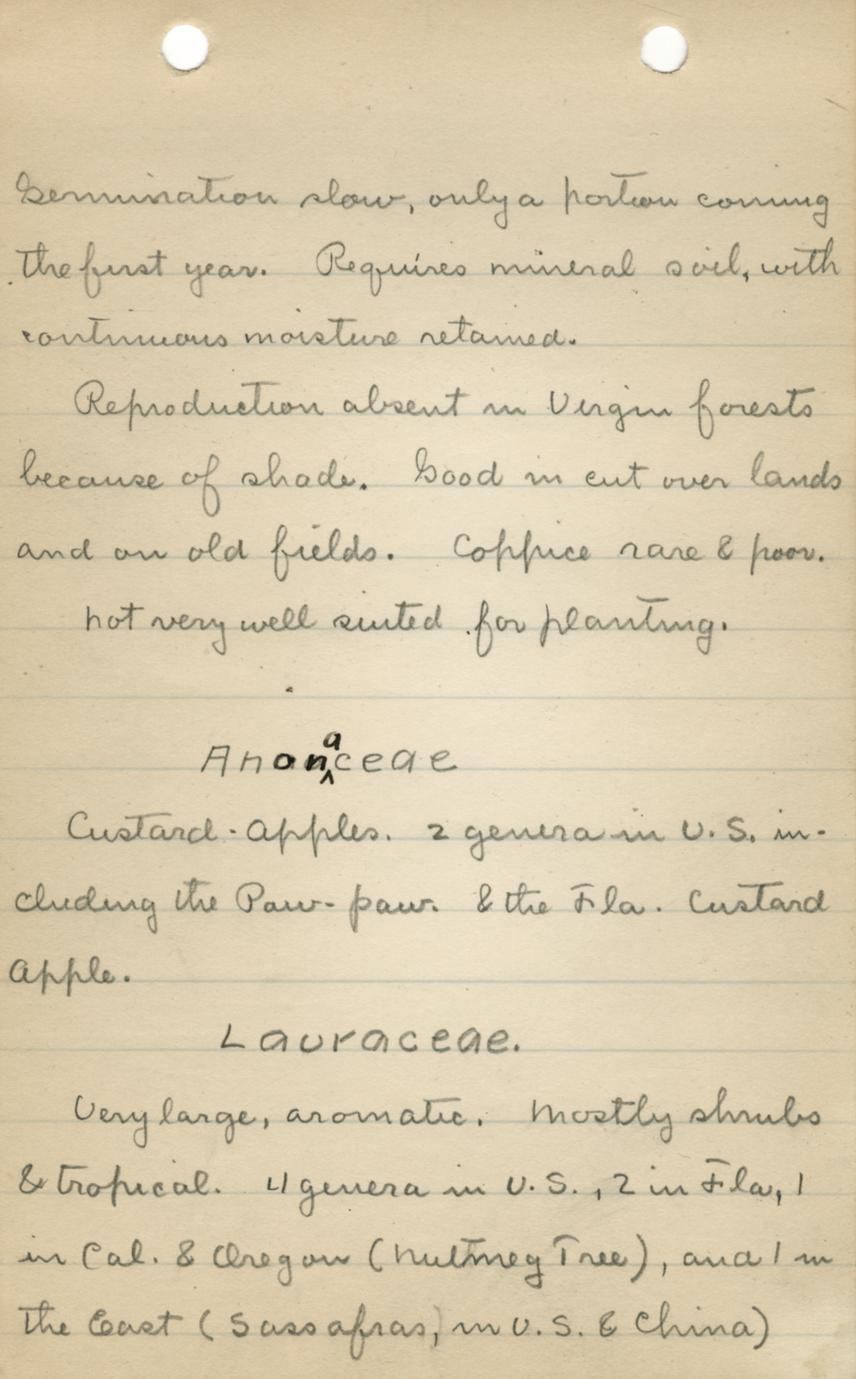 Germination slow, only a portion coming
the first year. Requires mineral soil, with
continuous moisture retained.
Reproduction absent in Virgin forests
because of shade. Good in cut over lands
and on old fields. Coppice rare & poor.
Not very well suited for planting.
Anonaceae
Custard-Apples. 2 genera in U.S. in-
cluding the Paw-paw. & the Fla. Custard
Apple.
Lauraceae.
Very large, aromatic. Mostly shrubs
& tropical. 4 genera in U.S., 2 in Fla, 1
in Cal. & Oregon (Nutmeg Tree), and 1 in
the East (Sassafras, in U.S. & China)